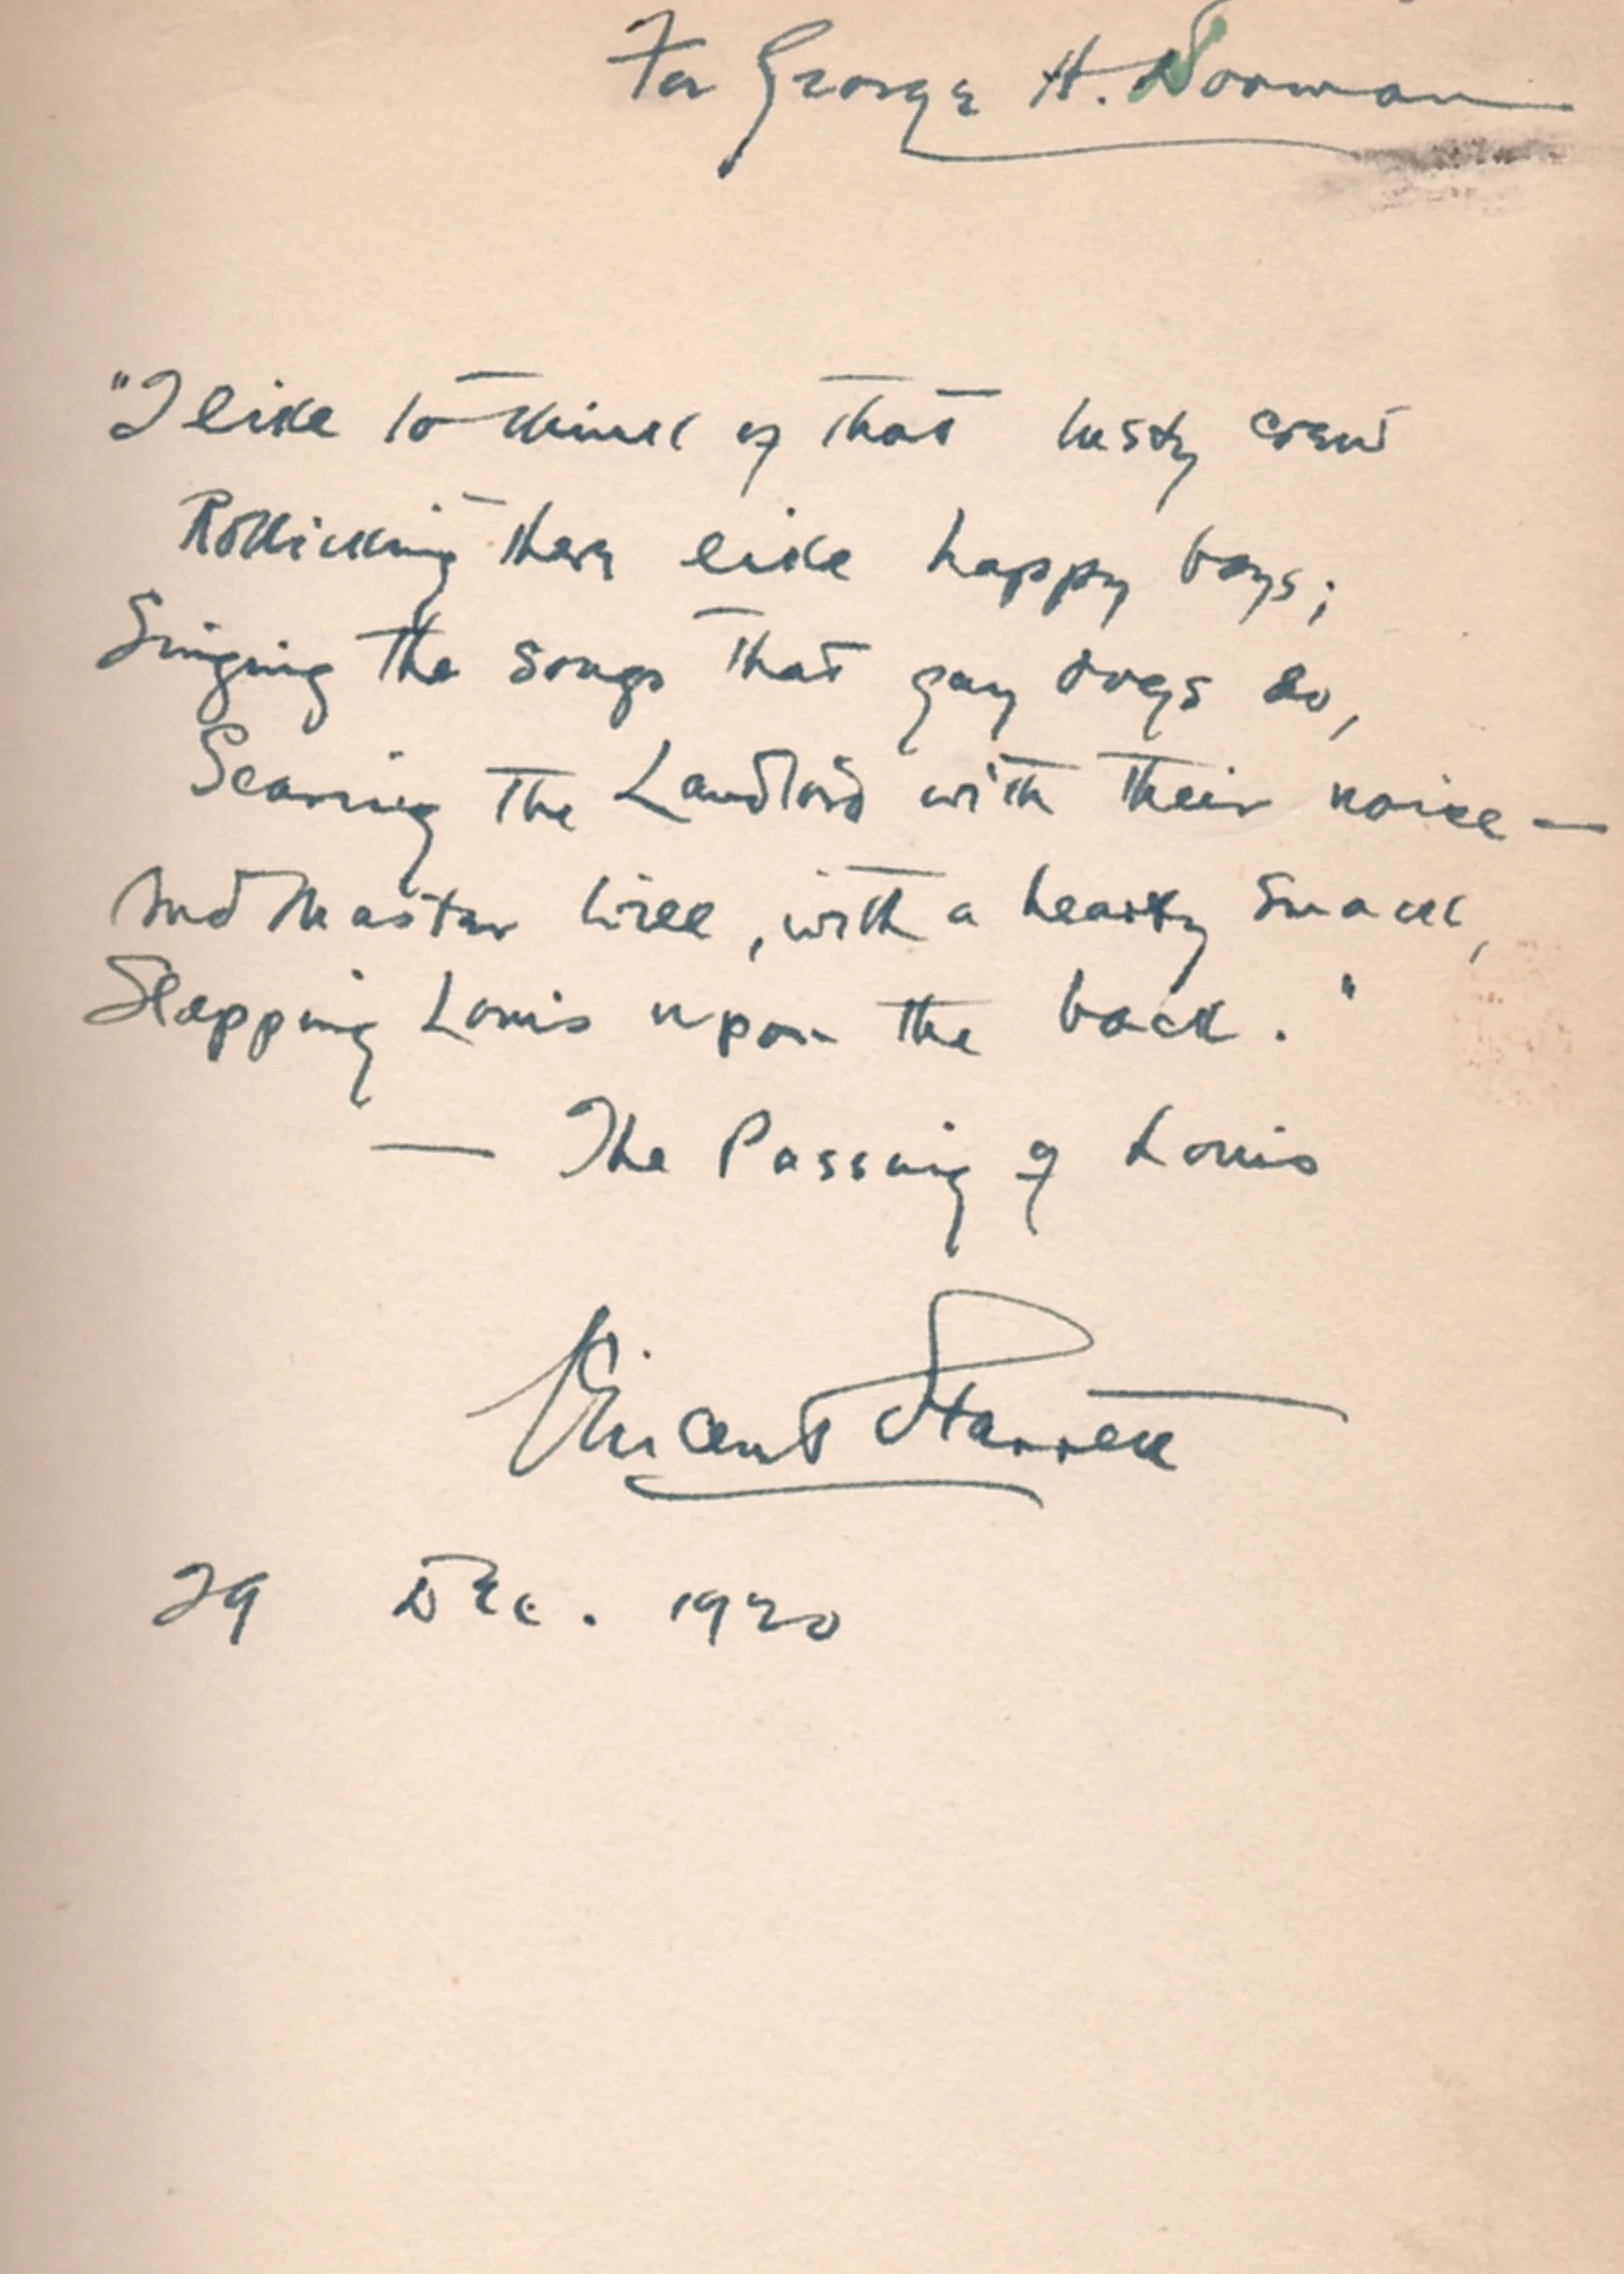 For George H. Norman
"I like to think of that lusty crew
Rollicking there like happy boys;
Singing the songs that gay dogs do,
Scaring the Landlord with their noise—
And Master Will, with a hearty smack,
Slapping Louis upon the back."
— The Passing of Louis
Vincent Starrett
29 Dec. 1920